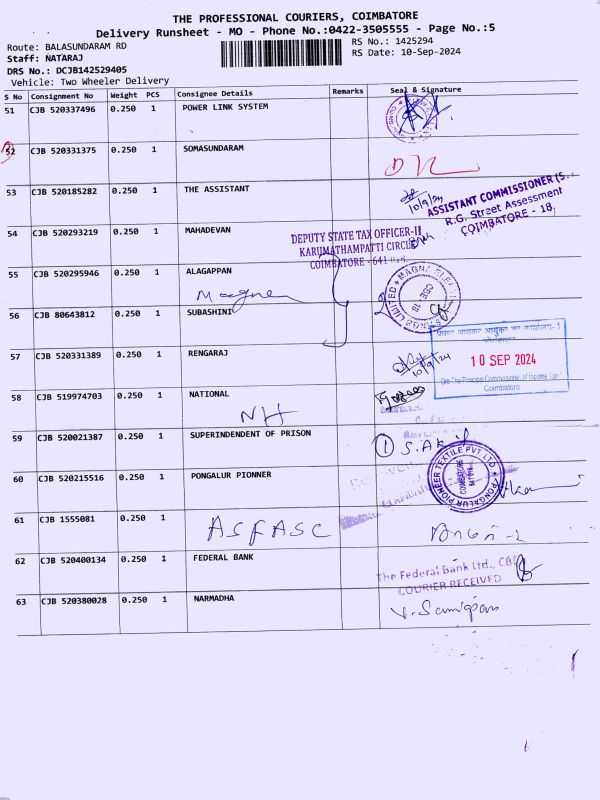 THE PROFESSIONAL COURIERS, COIMBATORE
Delivery Runsheet - MO - Phone No.:0422-3505555 - Page No.:5
Route: BALASUNDARAM RD
RS No.: 1425294
Staff: NATARAJ
RS Date: 10-Sep-2024
DRS No.: DCJB142529405
Vehicle: Two Wheeler Delivery
S No Consignment No Weight PCS Consignee Details Remarks Seal & Signature
51 CJB 520337496 0.250 1 POWER LINK SYSTEM
52 CJB 520331375 0.250 1 SOMASUNDARAM
53 CJB 520185282 0.250 1 THE ASSISTANT
10/9/24
ASSISTANT COMMISSIONER (S.
R.G. Street Assessment
COIMBATORE - 18.
54 CJB 520293219 0.250 1 MAHADEVAN
DEPUTY STATE TAX OFFICER-II
KARUMATHAMPATTI CIRCLE
COIMBATORE - 641
55 CJB 520295946 0.250 1 ALAGAPPAN
Magna
56 CJB 80643812 0.250 1 SUBASHINI
57 CJB 520331389 0.250 1 RENGARAJ
10/9/24
10 SEP 2024
O/o The Principal Commissioner of Income Tax
Coimbatore
58 CJB 519974703 0.250 1 NATIONAL
NH
59 CJB 520021387 0.250 1 SUPERINDENDENT OF PRISON
1 S.Akil
60 CJB 520215516 0.250 1 PONGALUR PIONNER
PONGALUR PIONEER TEXTILE PVT LTD
COIMBATORE
61 CJB 1555081 0.250 1
ASFASC
62 CJB 520400134 0.250 1 FEDERAL BANK
The Federal Bank Ltd., CBE
COURIER RECEIVED
63 CJB 520380028 0.250 1 NARMADHA